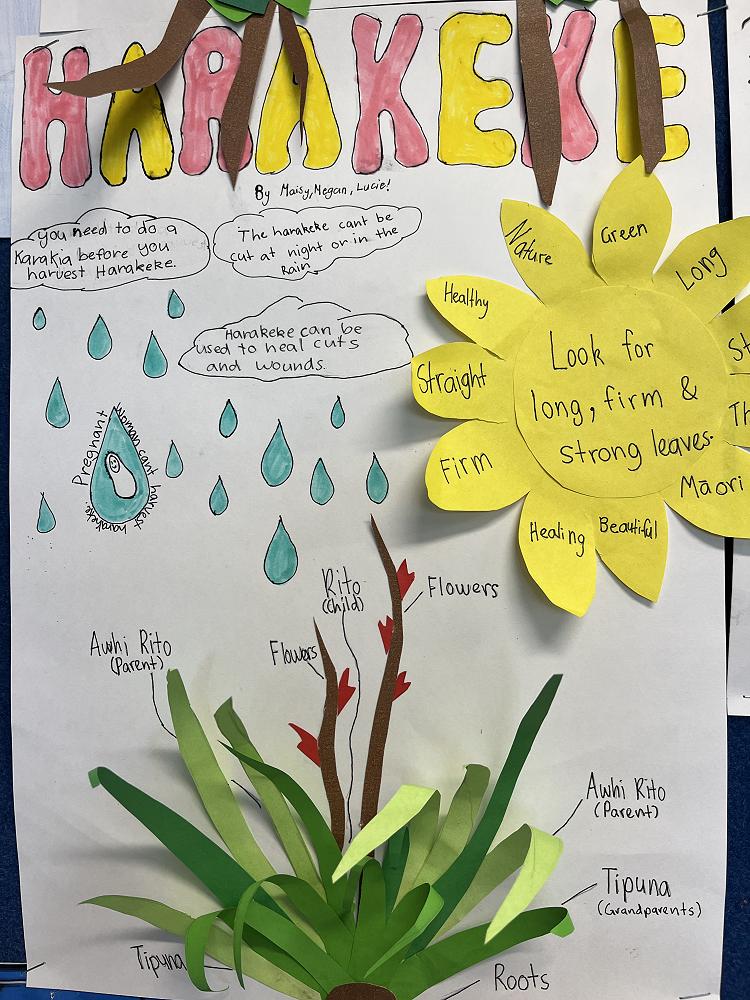 HARAKEKE
By Maisy, Megan, Lucie!
you need to do a
Karakia before you
harvest Harakeke.
The harakeke cant be
cut at night or in the
Rain
Harakeke can be
used to heal cuts
and wounds.
Pregnant
Woman cant harvest
harakeke.
Nature
Green
Long
Healthy
Straight
Firm
Healing
Beautiful
Māori
St
Th
Look for
long, firm &
strong leaves.
Rito
(child)
Flowers
Awhi Rito
(Parent)
Flowers
Awhi Rito
(Parent)
Tipuna
(Grandparents)
Tipuna
Roots